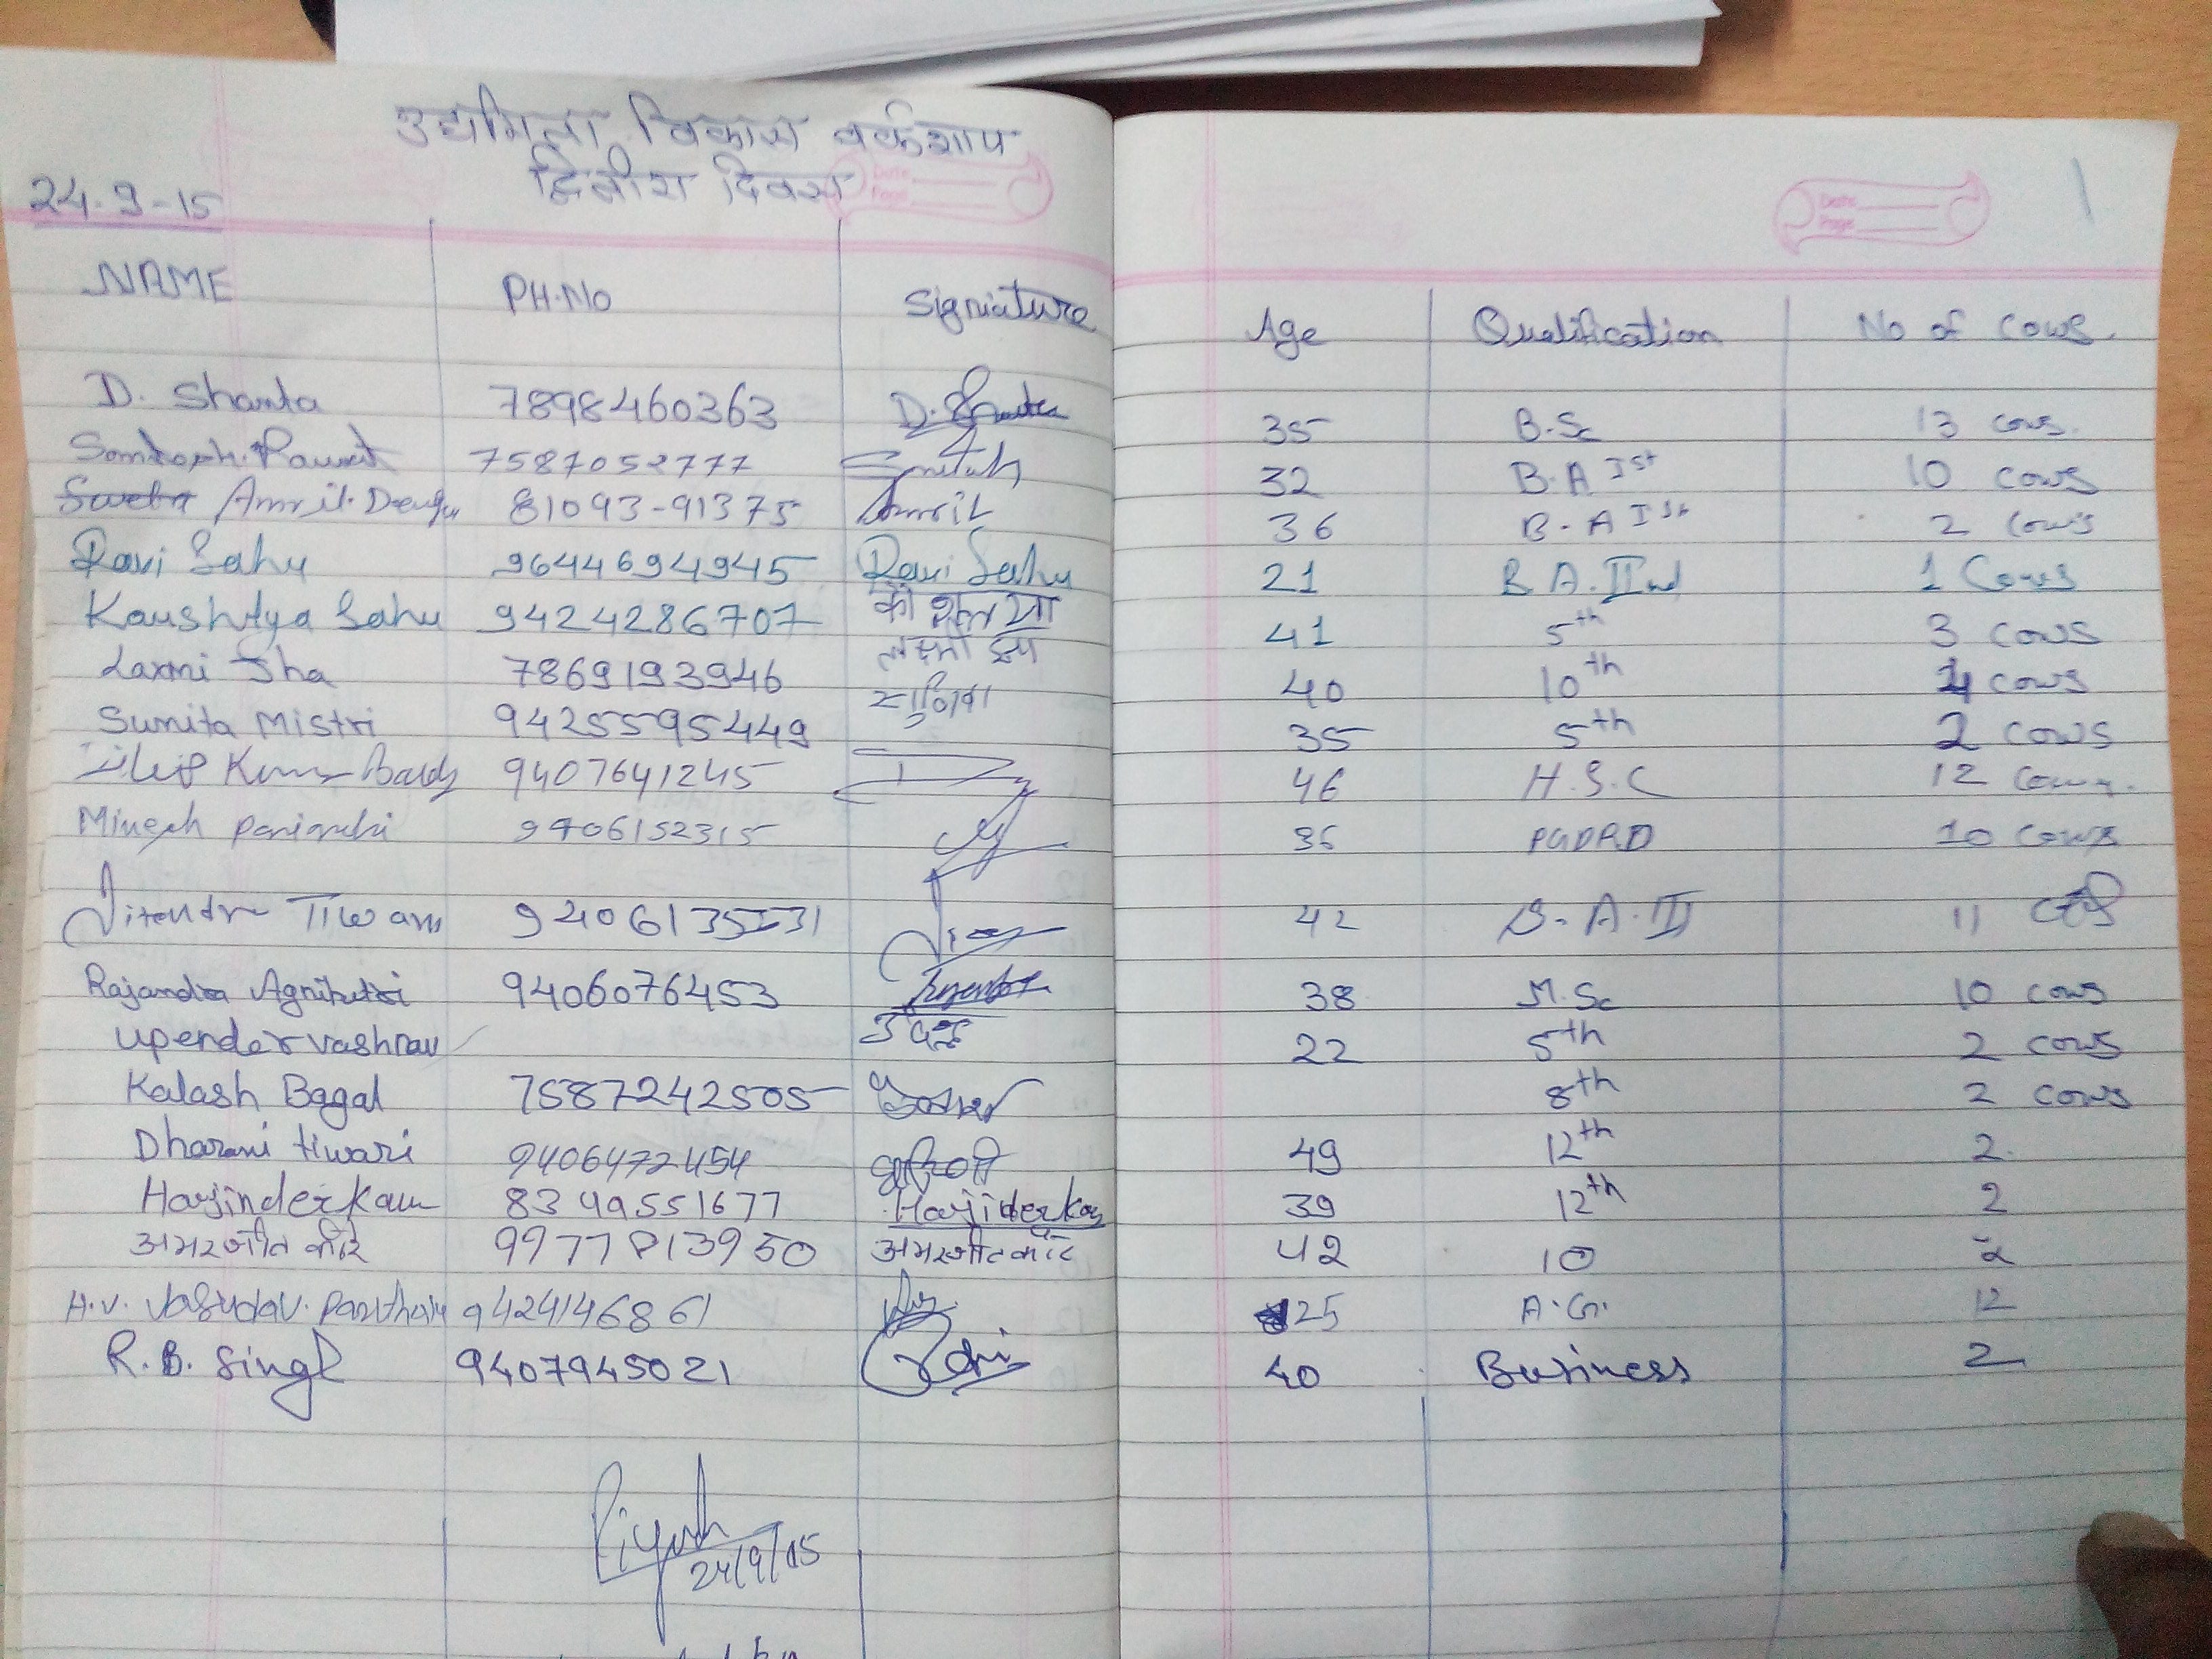 उद्यमिता विकास वर्कशाप
द्वितीय दिवस
24-9-15
Date
Page
Date
Page
NAME PH.NO Signiature Age Qualification No of cows.
D. Shanta 7898460363 D. Shanta 35 B.Sc 13 cows.
Santosh 7587052777 32 B.A Ist 10 cows
Amrit 81093-91375 Amrit 36 B.A Ist 2 cows
Ravi Sahu 9644694945 Ravi Sahu 21 B A. IInd 1 Cows
Kaushlya Sahu 9424286707 कौशल्या 41 5th 3 cows
Laxmi Jha 7869193946 लक्ष्मी झा 40 10th 4 cows
Sunita Mistri 9425595449 35 5th 2 cows
Dilip Kumar 9407641245 46 H.S.C 12 Cows.
Minesh 9406152315 36 PGDRD 10 cows
Jitendra Tiwari 9406135131 42 B.A.III 11
Rajandra Agnihotri 9406076453 38 M.Sc 10 cows
upender vashnav उपेन्द्र 22 5th 2 cows
Kalash Bagal 7587242505 8th 2 cows
Dharani tiwari 9406472454 49 12th 2
Harjinder Kaur 8349551677 Harjider Kaur 39 12th 2
अमरजीत कौर 9977813950 अमरजीत कौर 42 10 2
H.V. Vasudav. 9424146861 25 A.G. 12
R.B. Singh 9407945021 40 Business 2
Piyush
24/9/15